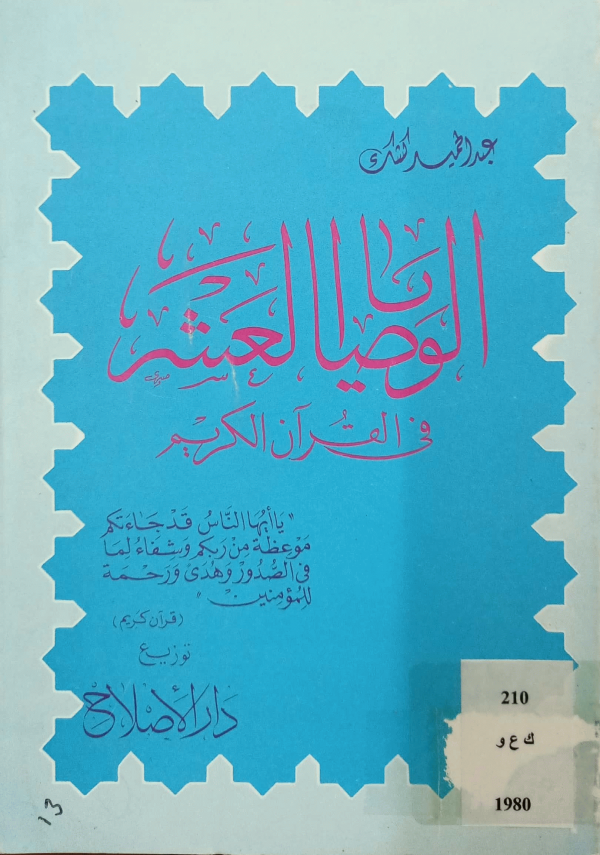 عبد الحميد كشك
الوصايا العشر
في القرآن الكريم
"يا أيها النَّاسُ قَدْ جَاءَتكم
مَوعِظَة مِنْ رَبِكم وَشِفَاءٌ لمَا
في الصُّدُورِ وَهُدَىً وَرَحْمَة
للمُؤمِنين"
(قرآن كريم)
توزيع
دار الأصلاح
210
ك ع و
1980
13